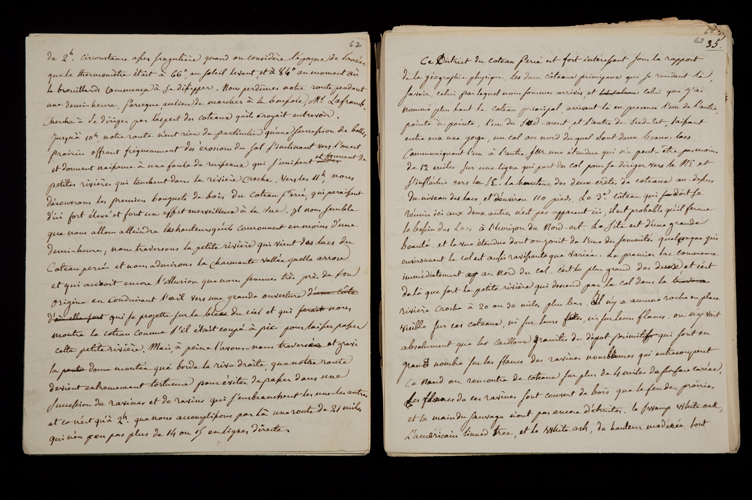 62
de 2h. Circonstance assez singulière quand on considère l'époque de l'année
que le thermomètre était à 66° au soleil levant et à 84° au moment où
le brouillard commença à se dissiper. Nous perdimes notre route pendant
une demi heure, parceque au lieu de marcher à la boussole, Mr Laframb.
chercha à se diriger par l'aspect des coteaux qu'il croyait entrevoir.
Jusqu'à 10h notre route n'eut rien de particulier qu'une succession de belles
prairies offrant fréquemment du érosions du sol s'inclinant vers l'ouest
et donnant naissance à une foule de ruisseaux qui s'unissent et forment de
petites rivières qui tombent dans la rivière Croche. Vers les 11h nous
découvrons les premiers bouquets de bois du Coteau Percé, qui paraissent
d'ici fort élevé et font un effet merveilleux à la vue. Il nous semble
que nous allons atteindre les hauteurs qu'ils couronnent en moins d'une
demi heure, nous traversons la petite rivière qui vient des lacs du
Coteau percée et nous admirons la charmante vallée qu'elle arrose
et qui encore l'illusion que nous sommes très près de son
origine en conduisant l'œil vers une grande ouverture
qui se projette sur le bleu du ciel et qui nous
montre le coteau comme s'il était coupé à pic pour laisser passer
cette petite rivière. Mais, à peine l'avons-nous traversée et gravi
la douce montée qui borde la rive droite, que notre route
devient extremement tortueuse pour éviter de passer dans une
succession de ravines et de ravins qui s'embranchent les uns les autres
et ce n'est qu'à 2h. que nous accomplissons par là une route de 21 miles
qui n'en a pas plus de 14 ou 15 en lignes directe.
35.
Ce District du coteau Percé est fort intéressant sous le rapport
de la géographie physique. Les deux coteaux principaux qui se rendent là,
savoir, celui par lequel nous sommes arrivés et celui que j'ai
nommé plus haut le coteau principal arrivent là en presence l'un de l'autre,
pointe à pointe, l'un du Nord ouest, et l'autre du Sud Est, laissant
entre eux une gorge, un col au nord du quel sont deux beaux lacs
Communiquant l'un à l'autre sur une étendue qui n'a peut-être pas moins
de 12 miles sur une ligne qui part du col pour se diriger vers le NE et
s'infléchir vers la SE. La hauteur des deux côtés de coteaux au dessus
du niveau des lacs est d'environ 110 pieds. Le 3e. coteau qui
réunir ici aux deux autres n'est pas apparent ici, il est probable qu'il forme
le bassin des lacs à l'horizon du Nord-est. Le site est d'une grande
beauté et la vue étendue dont on jouit de l'une des sommités quelconques qui
environnent le col est aussi ravissante que variée. Le premier lac commence
immédiatement au Nord du col. c'est le plus grand des deux et c'est
de là que sort la petite rivière qui descend par le col dans la
rivière Croche à 20 ou 30 miles plus bas. Il n'y a aucune roche en place
visible sur ces coteaux, ni sur leurs faîtes, ni sur leurs flancs, on n'y voit
absolument que les cailloux granits de dépôt primitifs qui sont en
grand nombre sur les flancs des ravines nombreuses qui entrecoupent
ce Nœud ou rencontre de coteaux sur plus de 4 miles de surface carrée.
Les flancs de ces ravines sont couvert de bois que le feu des prairies
et la main du sauvage n'ont pas encore détruites. Le Swamp White oak,
L'américain linard tree, et le White ash, de hauteur modérée sont